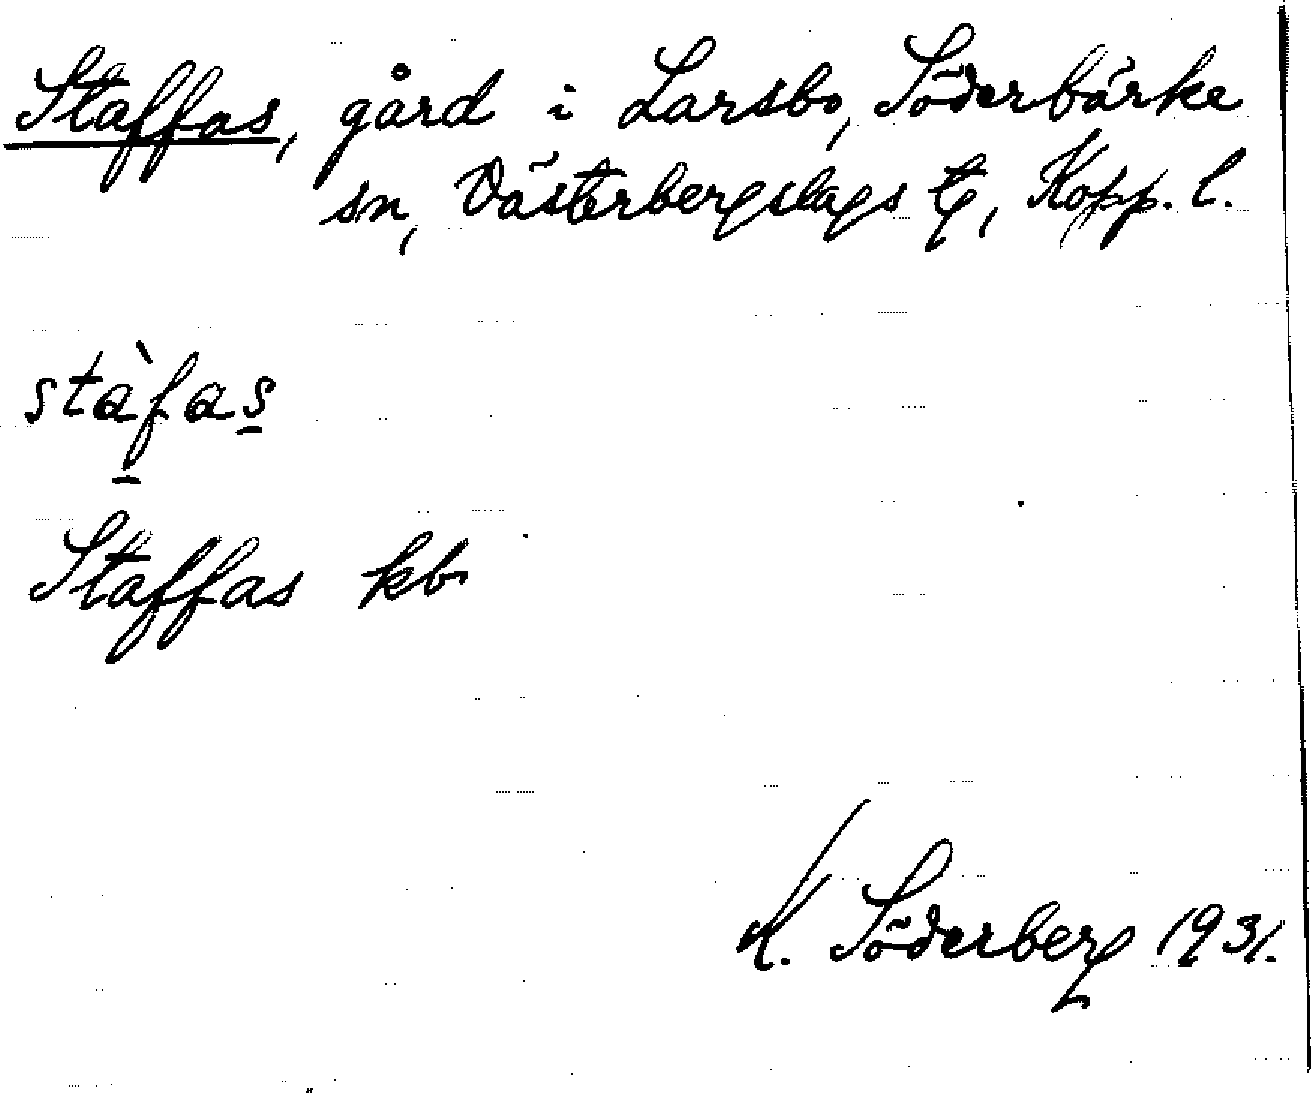 Staffas, gård i Larsbo, Söderbärke
sn, Västerbergslags tg, Kopp. l.
stàf̱as̱
Staffas kb
K. Söderberg 1931.